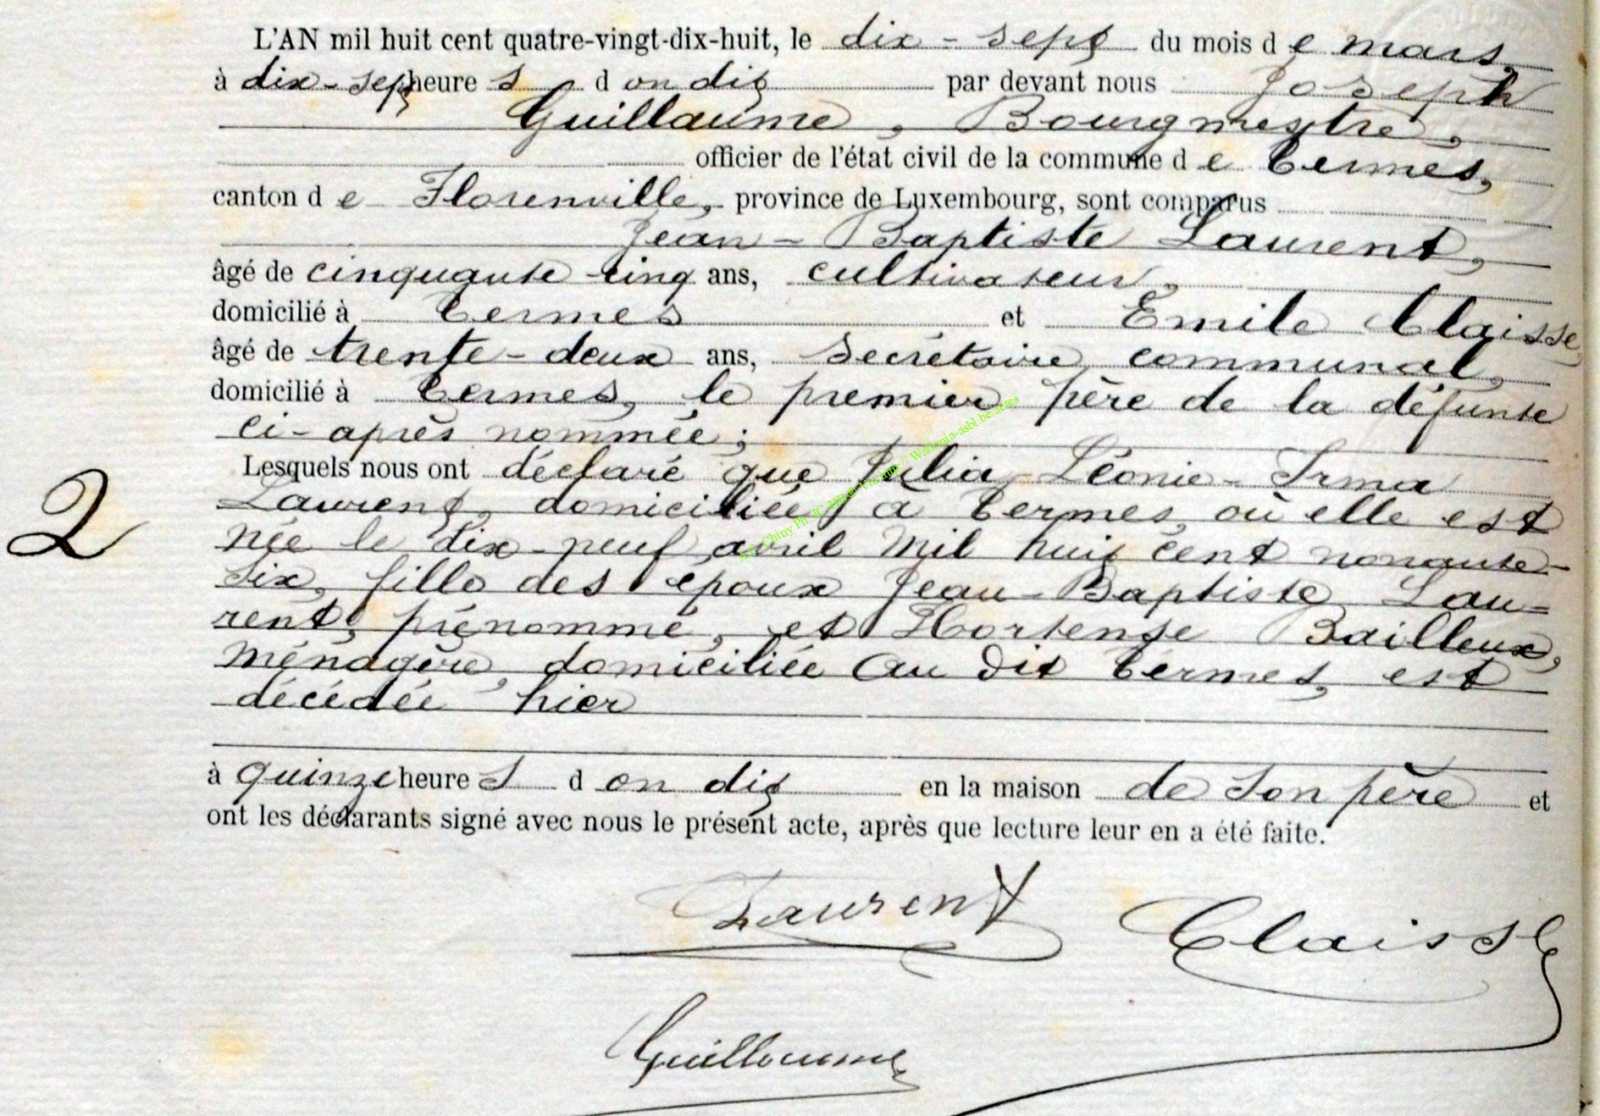 L'AN mil huit cent quatre-vingt-dix-huit, le dix-sept du mois de mars,
à dix-sept heures d on dit par devant nous Joseph
Guillaume, Bourgmestre,
officier de l'état civil de la commune de Termes,
canton de Florenville, province de Luxembourg, sont comparus
Jean-Baptiste Laurent,
âgé de cinquante-cinq ans, cultivateur,
domicilié à Termes et Emile Claisse,
âgé de trente-deux ans, secrétaire communal,
domicilié à Termes, le premier père de la défunte
ci-après nommée;
Lesquels nous ont déclaré que Julia-Léonie-Irma
Laurent, domiciliée à Termes, où elle est
née le dix-neuf avril mil huit cent nonante-
six, fille des époux Jean-Baptiste Lau-
rent, prénommé, et Hortense Bailleux,
ménagère, domiciliée au dit Termes, est
2
décédée hier
à quinze heures d on dit en la maison de son père et
ont les déclarants signé avec nous le présent acte, après que lecture leur en a été faite.
Laurent Claisse
Guillaume